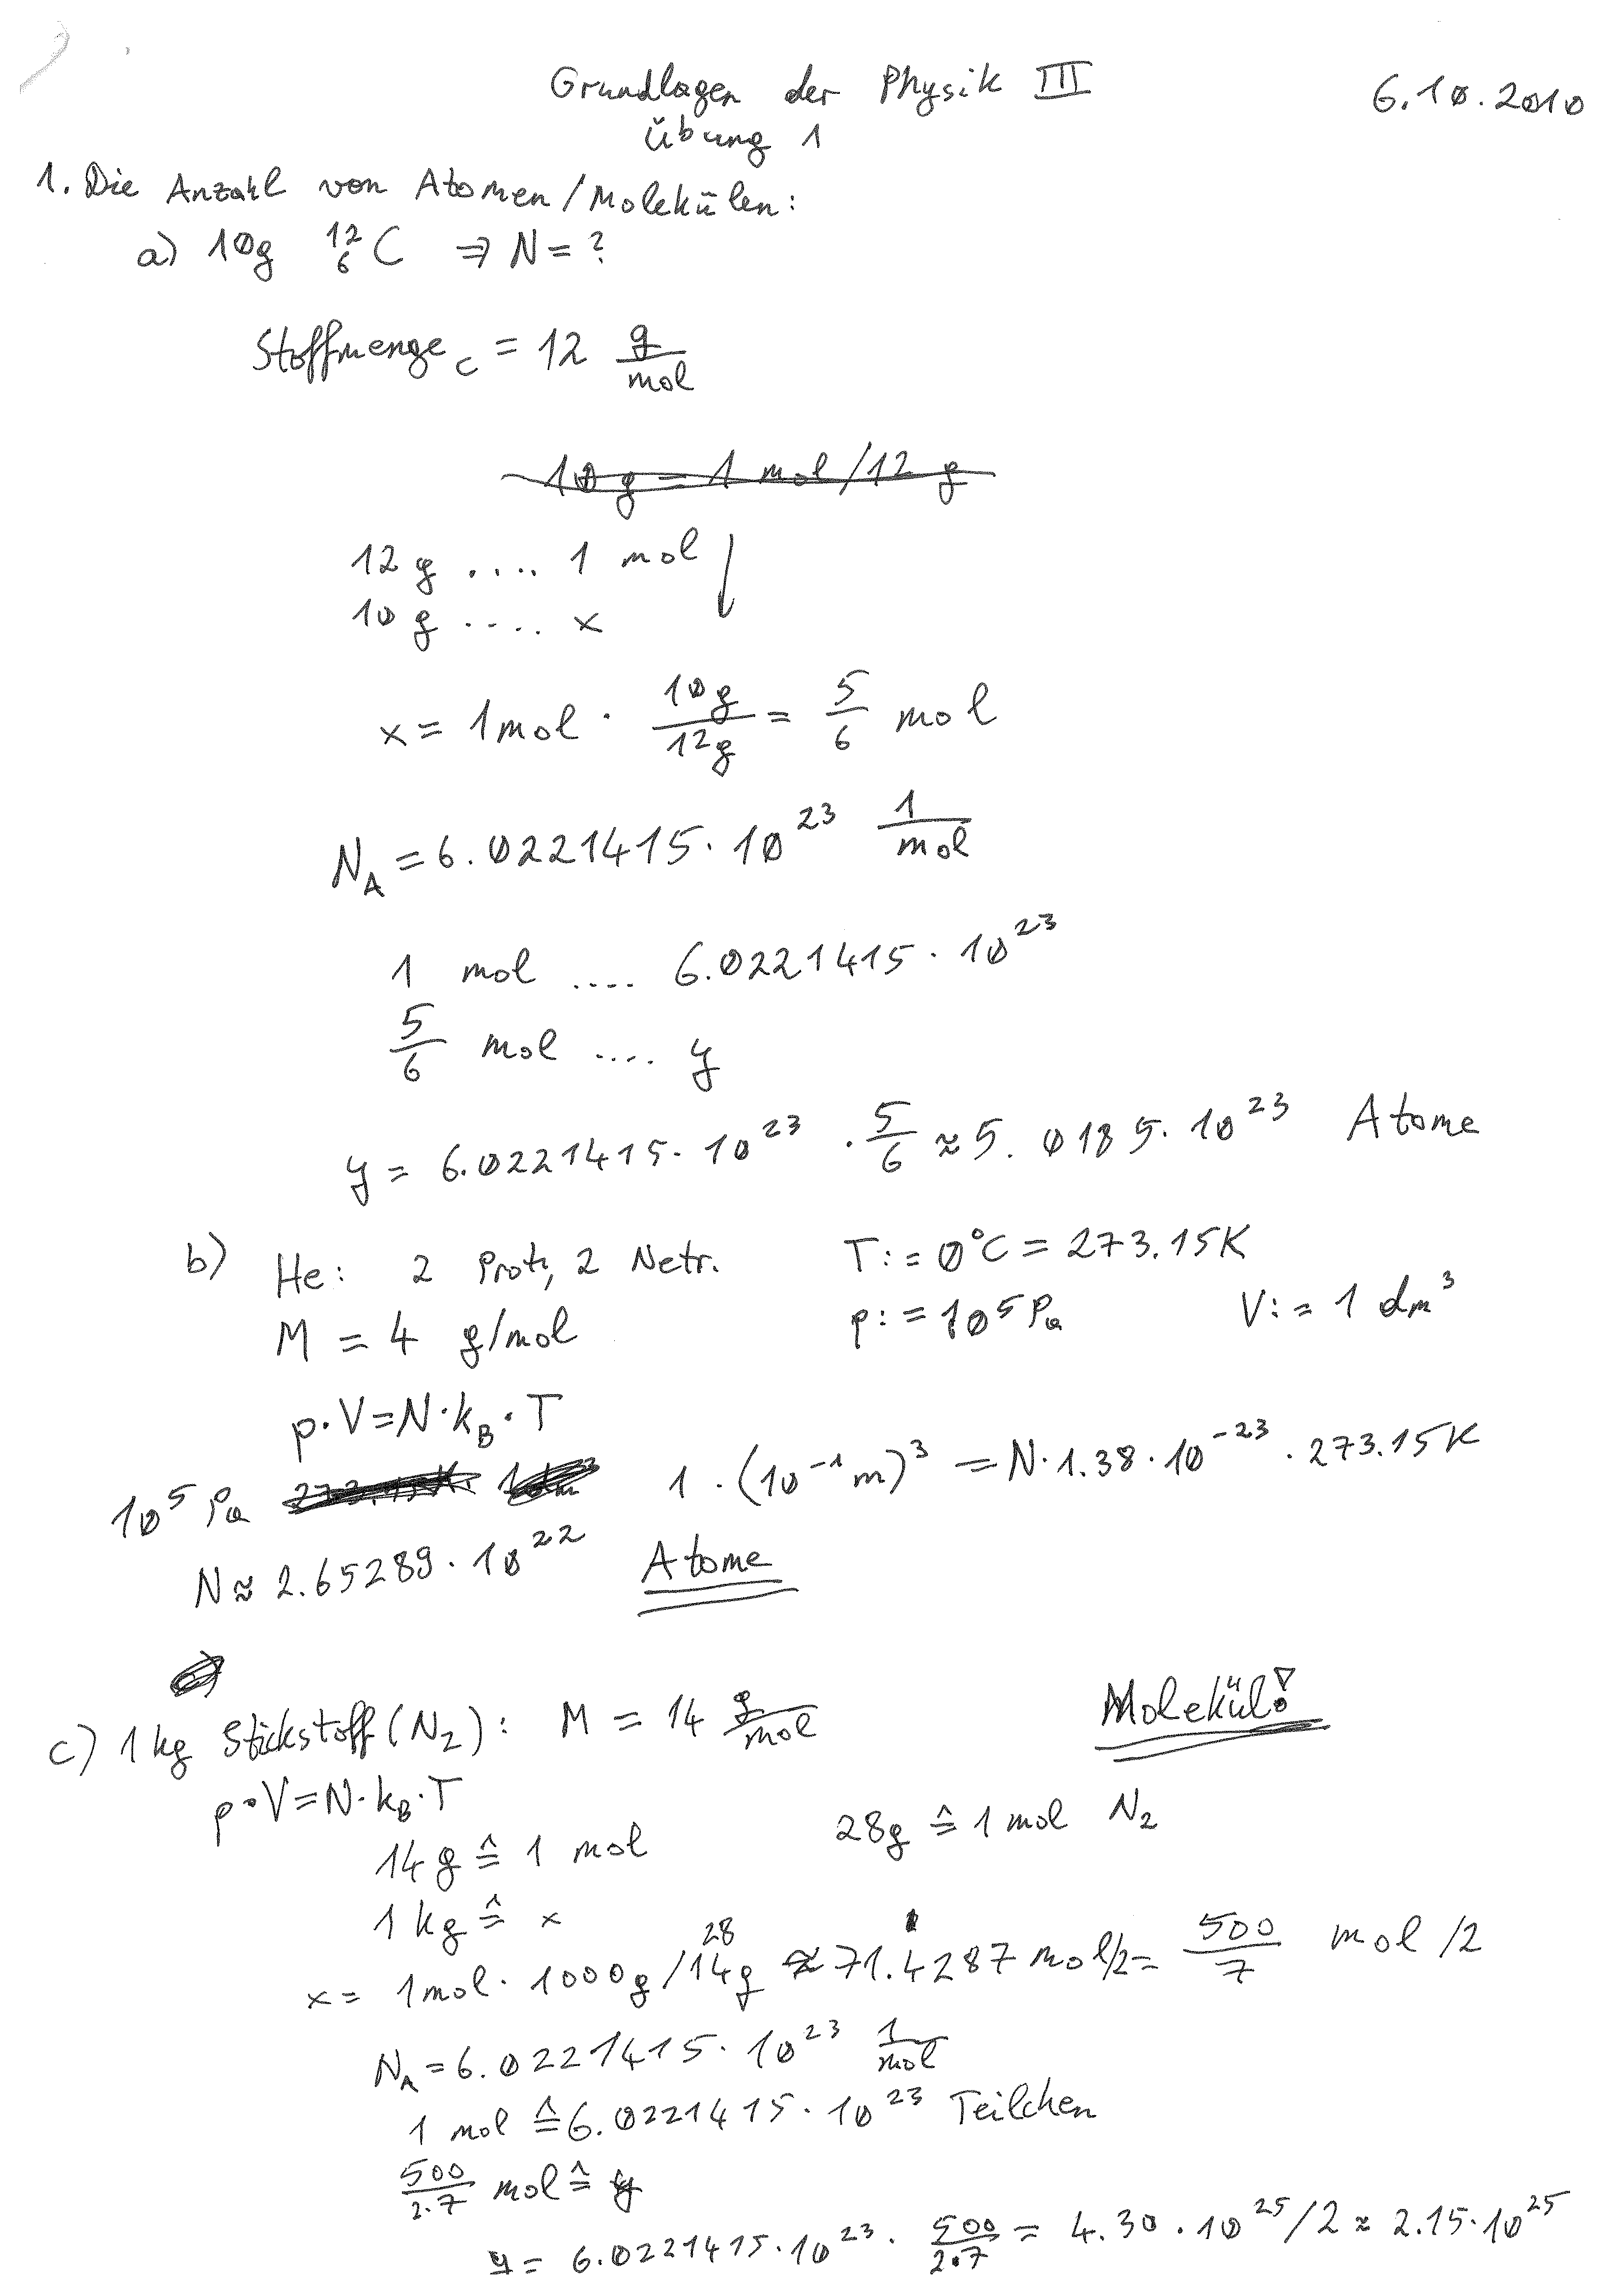 Grundlagen der Physik III 6.10.2010
Übung 1
1. Die Anzahl von Atomen/Molekülen:
a) 10g ¹²₆C ⇒ N = ?
Stoffmenge_C = 12 g/mol
10 g = 1 mol/12 g
12 g .... 1 mol
10 g .... x
x = 1 mol · 10g/12g = 5/6 mol
N_A = 6.0221415 · 10²³ 1/mol
1 mol .... 6.0221415 · 10²³
5/6 mol .... y
y = 6.0221415 · 10²³ · 5/6 ≈ 5.0185 · 10²³ Atome
b) He: 2 Prot., 2 Netr. T := 0°C = 273.15K
M = 4 g/mol p := 10⁵ Pa V := 1 dm³
p · V = N · k_B · T
10⁵ Pa 1 · (10⁻¹ m)³ = N · 1.38 · 10⁻²³ · 273.15K
N ≈ 2.65289 · 10²² Atome
c) 1 kg Stickstoff (N₂): M = 14 g/mol Molekül!
p · V = N · k_B · T
14 g ≙ 1 mol 28g ≙ 1 mol N₂
1 kg ≙ x
28
x = 1 mol · 1000g/14g ≈ 71.4287 mol/2 = 500/7 mol /2
N_A = 6.0221415 · 10²³ 1/mol
1 mol ≙ 6.0221415 · 10²³ Teilchen
500/2·7 mol ≙ y
y = 6.0221415 · 10²³ · 500/2·7 = 4.30 · 10²⁵/2 ≈ 2.15 · 10²⁵